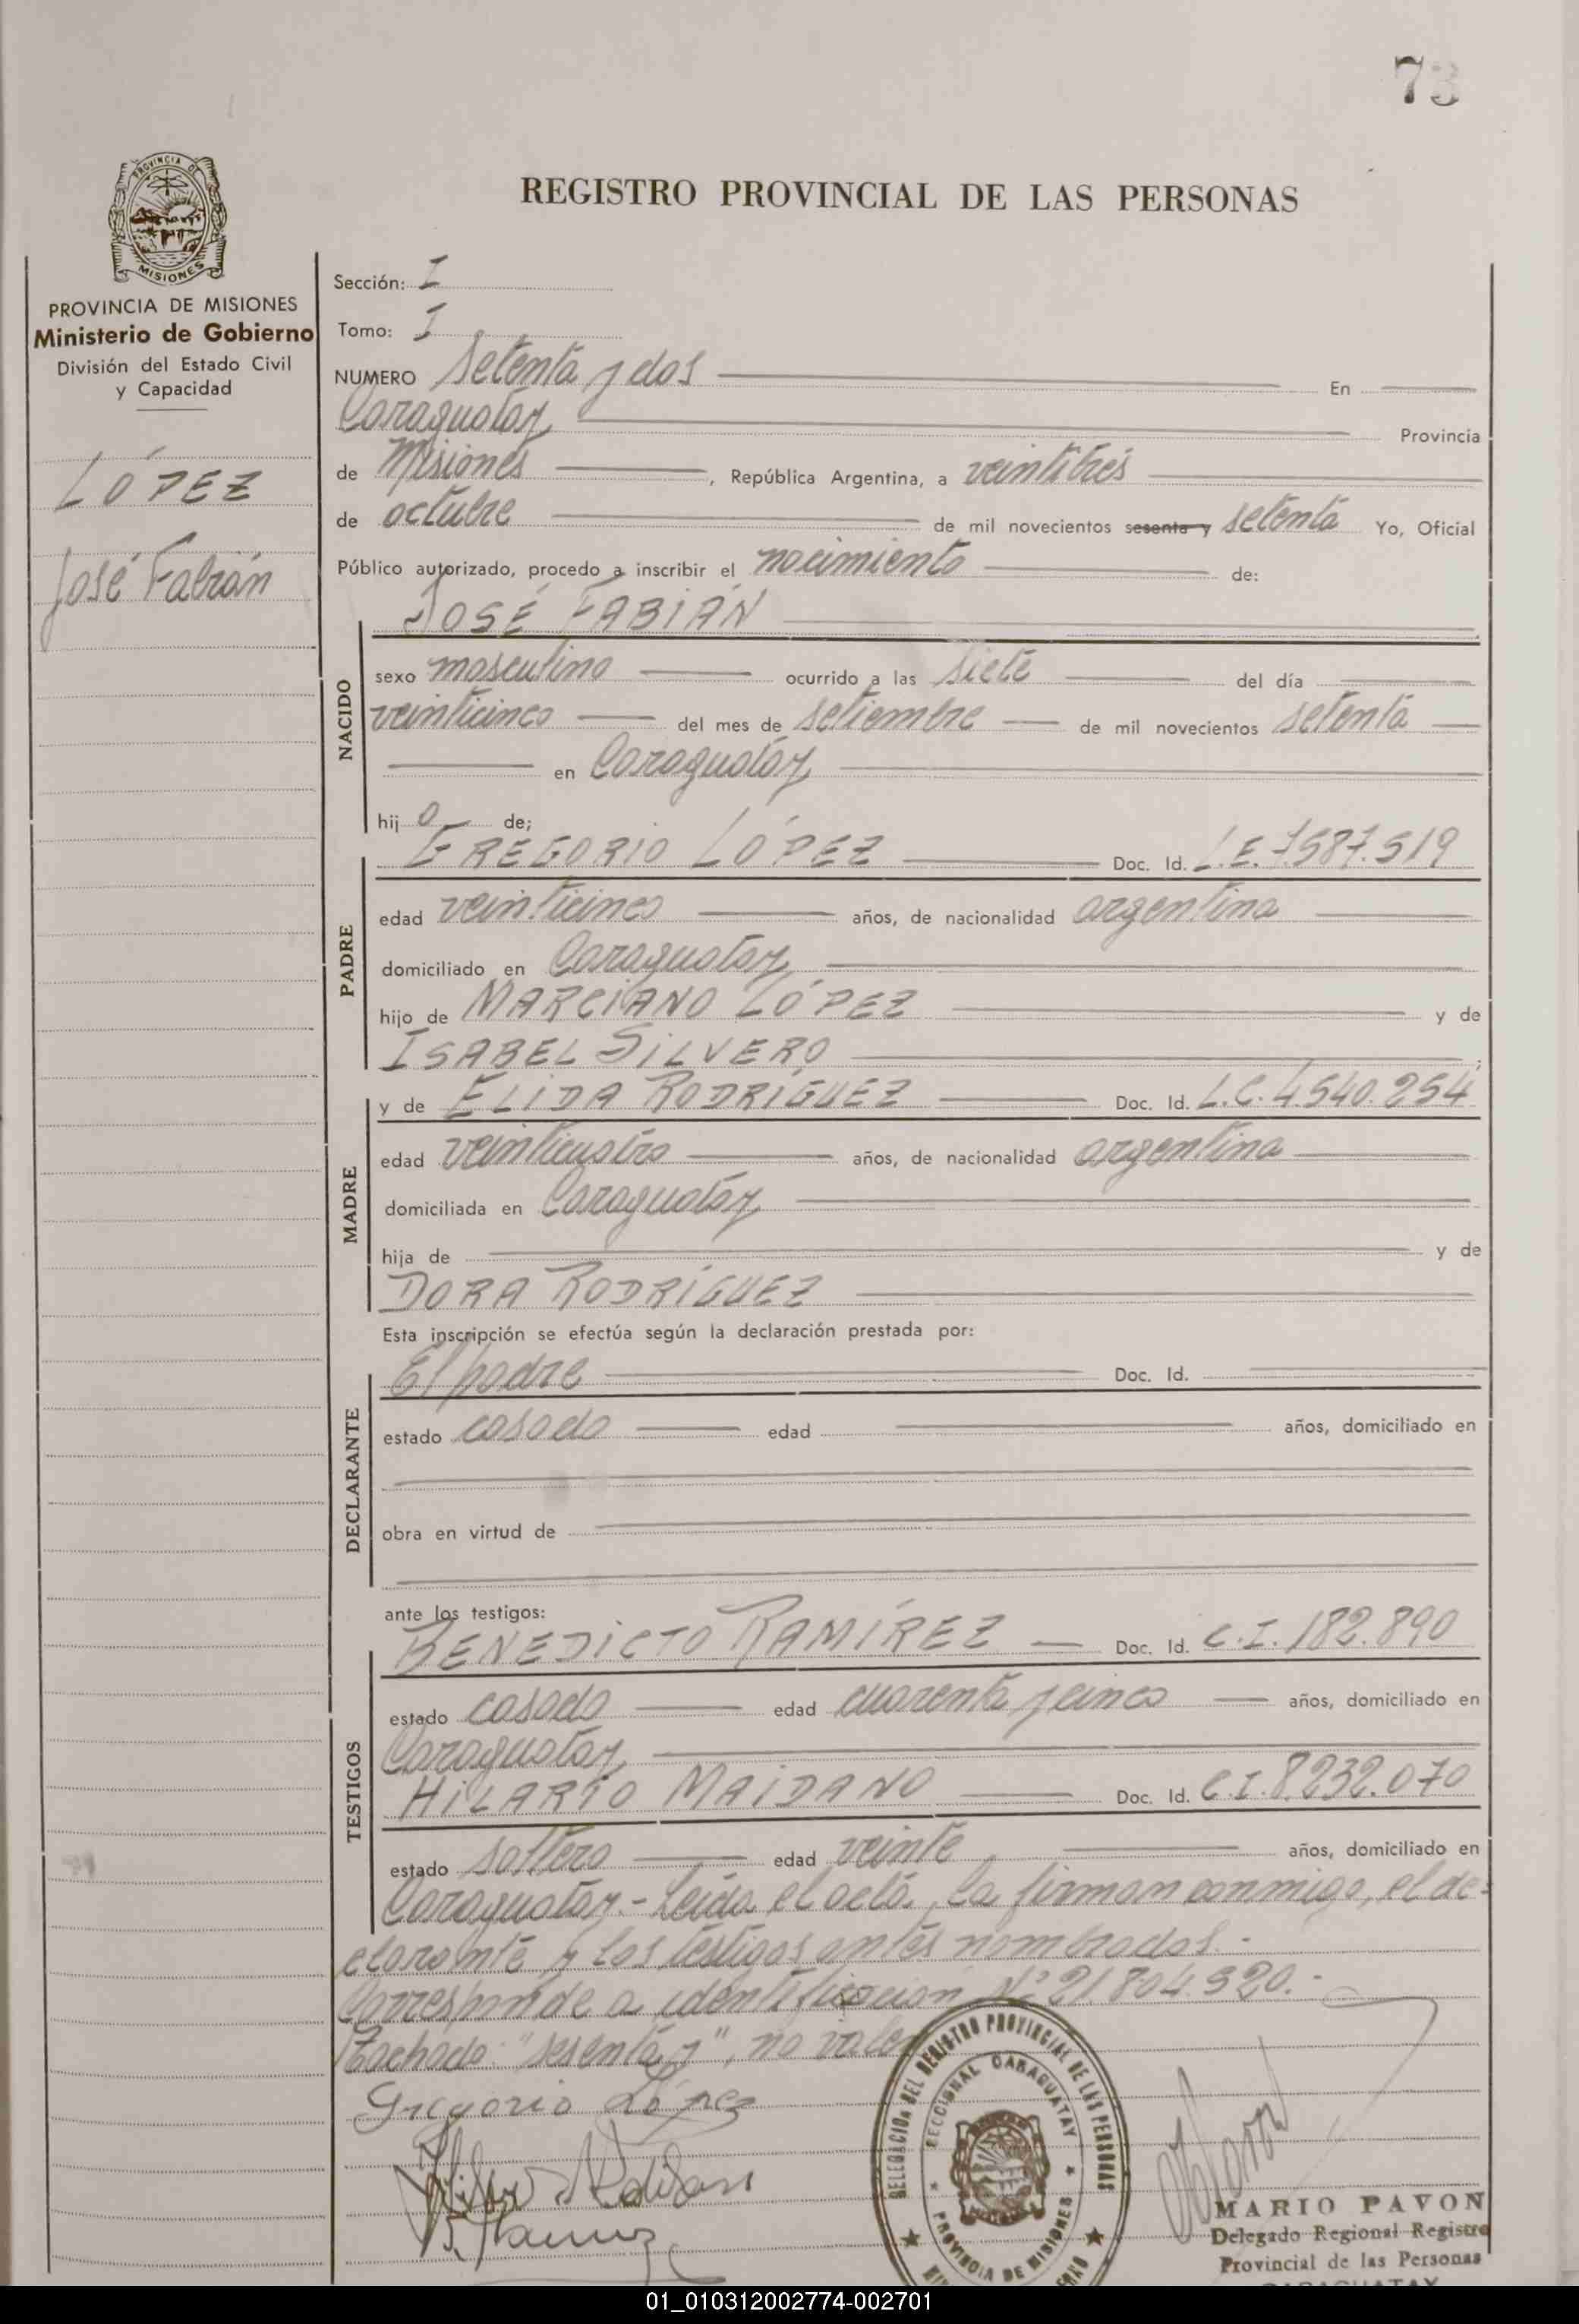 73
REGISTRO PROVINCIAL DE LAS PERSONAS
PROVINCIA DE
MISIONES
PROVINCIA DE MISIONES
Ministerio de Gobierno
División del Estado Civil
y Capacidad
LÓPEZ
José Fabián
Sección: I
Tomo: I
NUMERO Setenta y dos En
Caraguatay Provincia
de Misiones, República Argentina, a veintitrés
de octubre de mil novecientos sesenta y setenta Yo, Oficial
Público autorizado, procedo a inscribir el nacimiento de:
JOSÉ FABIÁN
NACIDO
sexo masculino ocurrido a las siete del día
veinticinco del mes de setiembre de mil novecientos setenta
en Caraguatay
hijo de;
GREGORIO LÓPEZ Doc. Id. L.E. 7.587.519
PADRE
edad veinticinco años, de nacionalidad argentina
domiciliado en Caraguatay
hijo de MARCIANO LÓPEZ y de
ISABEL SILVERO;
y de ELIDA RODRÍGUEZ Doc. Id. L.C. 4.540.254
MADRE
edad veinticuatro años, de nacionalidad argentina
domiciliada en Caraguatay
hija de y de
DORA RODRÍGUEZ
Esta inscripción se efectúa según la declaración prestada por:
El padre Doc. Id.
DECLARANTE
estado casado edad años, domiciliado en
obra en virtud de
ante los testigos:
BENEDICTO RAMÍREZ Doc. Id. C.I. 182.890
TESTIGOS
estado casado edad cuarenta y cinco años, domiciliado en
Caraguatay
HILARIO MAIDANO Doc. Id. C.I. 8.232.070
estado soltero edad veinte años, domiciliado en
Caraguatay.- Leída el acta, la firman conmigo, el de-
clarante y los testigos antes nombrados.-
Corresponde a identificación Nº 21.804.320.-
Tachado: "sesenta y", no vale
Gregorio López
DELEGACION DEL REGISTRO PROVINCIAL DE LAS PERSONAS
SECCIONAL CARAGUATAY
PROVINCIA DE MISIONES
MARIO PAVON
Delegado Regional Registro
Provincial de las Personas
CARAGUATAY
01_010312002774-002701